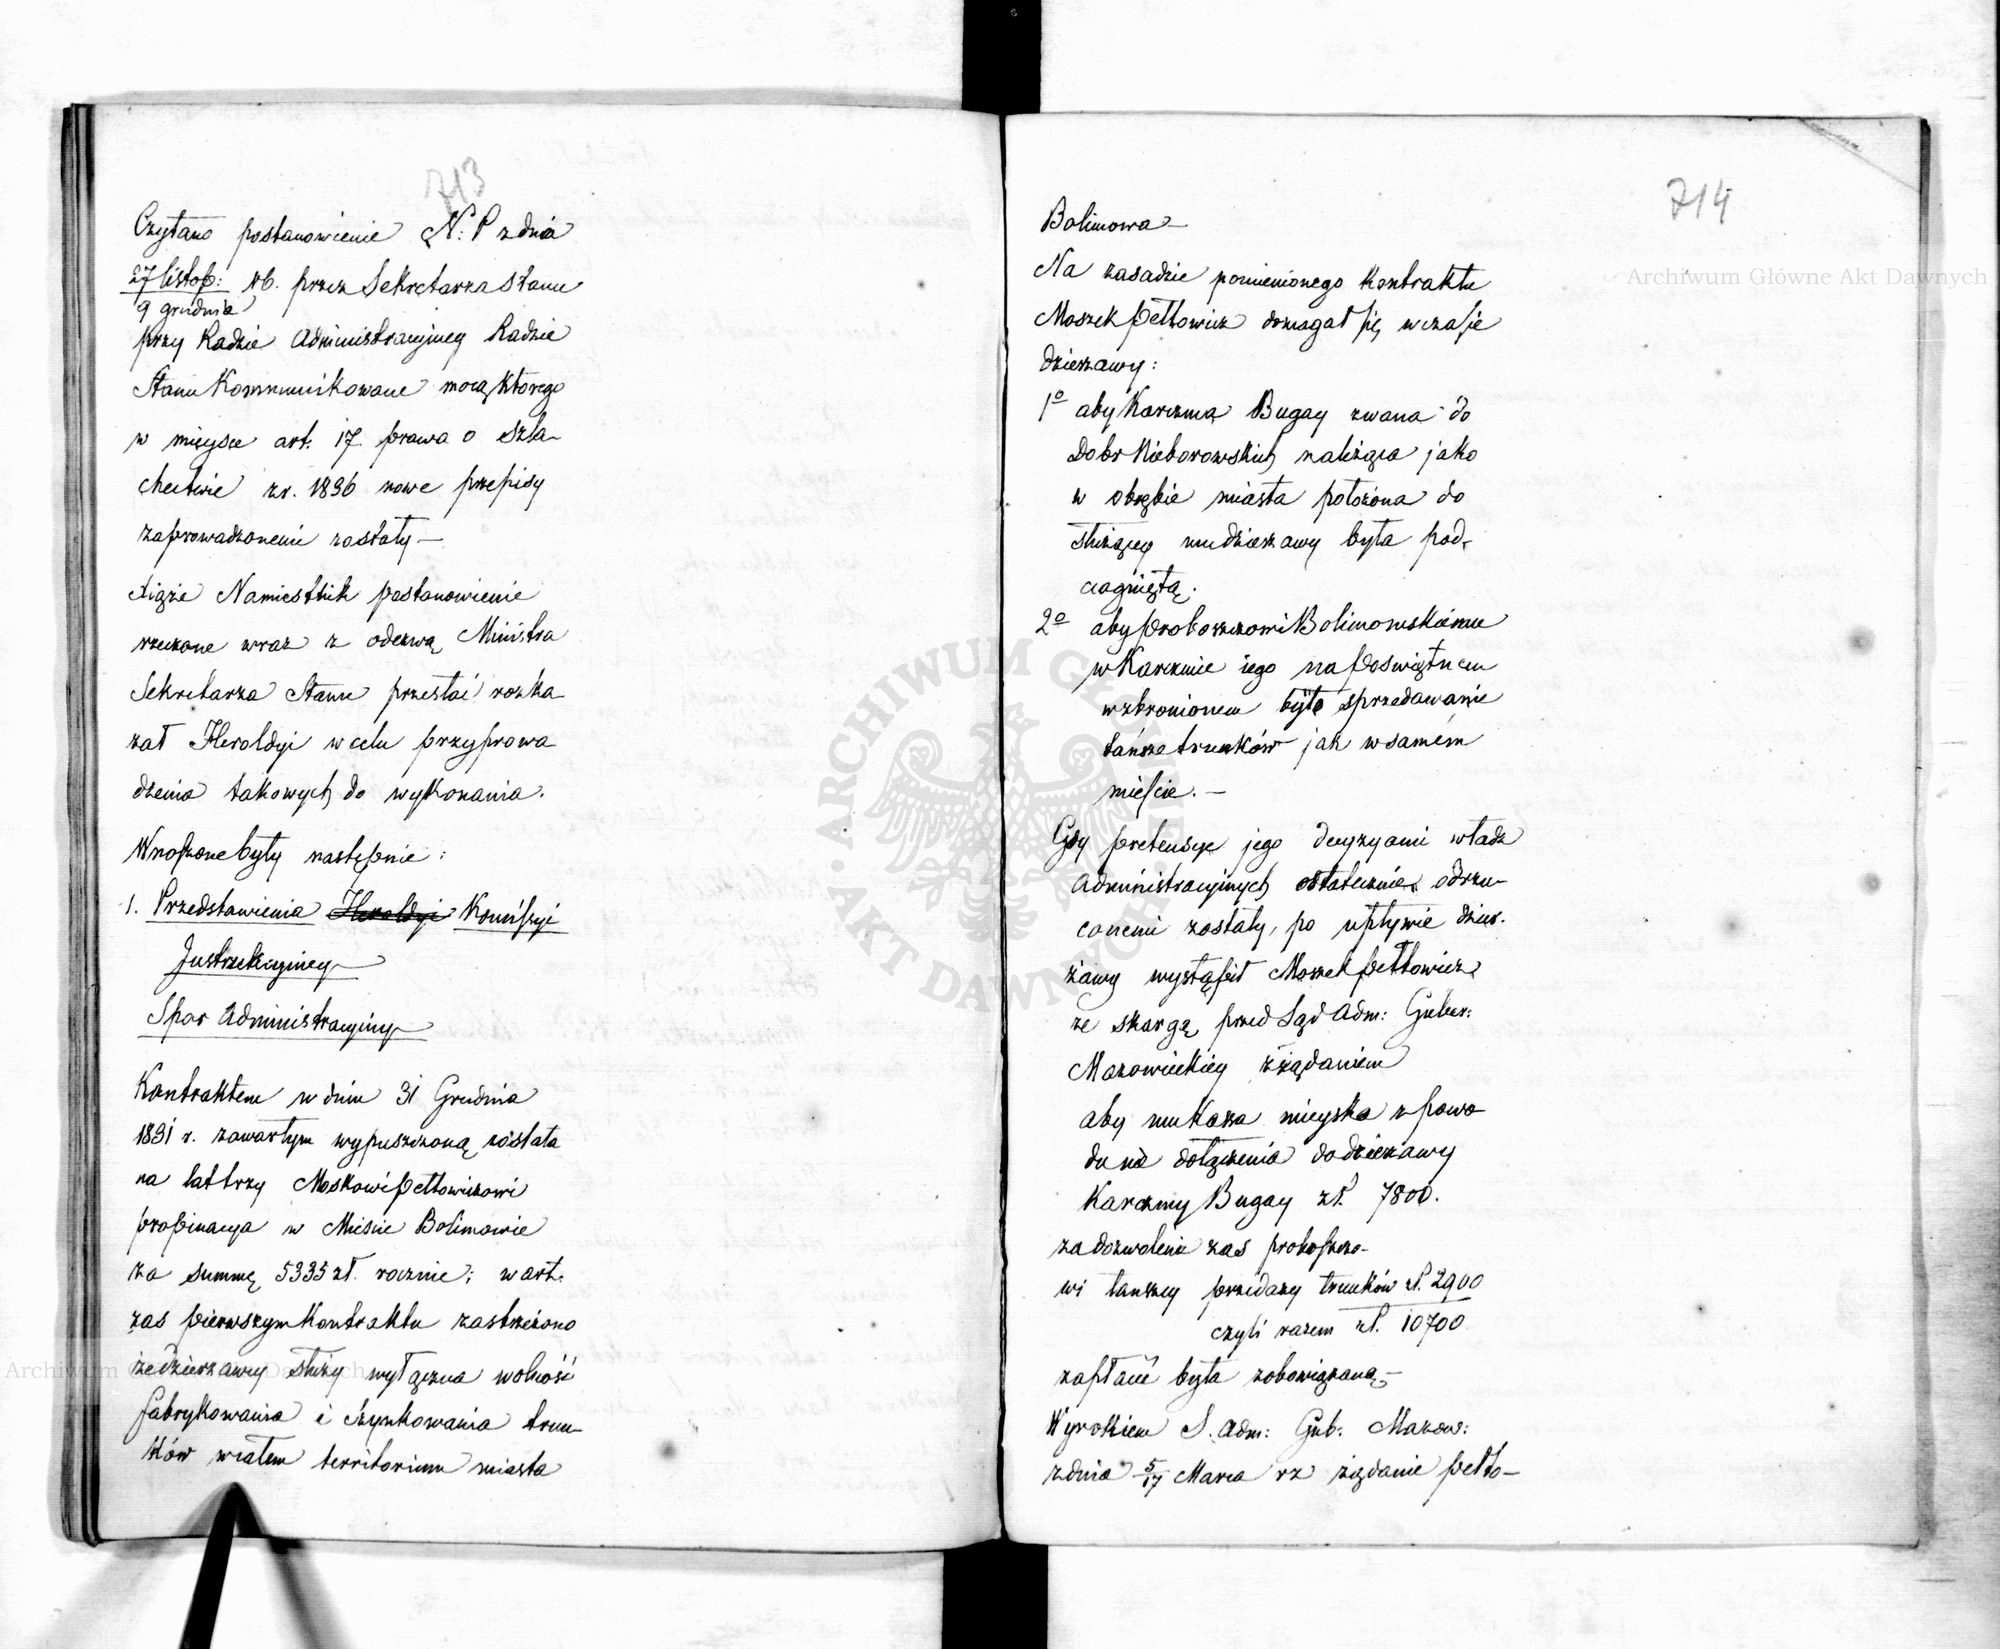 713
Czytano postanowienie N: P z dnia
27 listop: rb. przez Sekretarza Stanu
9 grudnia
przy Radzie Administracyjney Radzie
Stanu Kommunikowane mocą którego
w mieysce art: 17 prawa o szla-
chectwie z r. 1836 nowe przepisy
zaprowadzonemi zostały —
Xiąże Namiestnik postanowienie
rzeczone wraz z odezwą Ministra
Sekretarza Stanu przesłać rozka
zał Heroldyi w celu przyprowa
dzenia takowych do wykonania.
Wnoszone były następnie:
1. Przedstawienia Heroldyi Komissyi
Spor Administracyiny
Kontraktem w dniu 31 Grudnia
1831 r. zawartym wypuszczoną została
na lat trzy Moskowi Peltowiczowi
propinacya w Mieście Bolimowie
za summę 5335 zł. rocznie; w art.
zas pierwszym Kontraktu zastrzeżono
że dzierzawcy służy wyłączna wolność
fabrykowania i szynkowania trun-
ków w całem territorium miasta
714
Bolimowa —
Na zasadzie pomienionego Kontraktu
Moszek Peltowicz domagał się w czasie
dzierzawy:
1o aby Karczma Bugay zwana do
Dobr Nieborowskich należąca jako
w obrębie miasta położona do
służącey mu dzierzawy była pod-
ciągniętą.
2o aby Proboszczowi Bolimowskiemu
w Karczmie iego na Poswiętnem
wzbronionem było sprzedawanie
tańsze trunków jak w samém
mieście. —
Gdy pretensye jego decyzyami władz
Administracyjnych ostatecznie odrzu-
conemi zostały, po upływie dzier.
żawy wystąpił Moszek Peltowicz
ze skargą przed Sąd Adm: Guber:
Mazowieckiey z żądaniem
aby mu Kassa mieyska z powo
du nie dołączenia do dzierzawy
Karczmy Bugay zł. 7800.
za dozwolenie zas proboszczo-
wi tanszey przedazy trunków zł. 2900
czyli razem zł. 10700
zapłacić była zobowiązaną —
Wyrokiem S. Adm: Gub: Mazow:
z dnia 5/17 Marca rz żądanie Pelto-
Archiwum Główne Akt Dawnych
Archiwum Główne Akt Dawnych
ARCHIWUM GŁÓWNE AKT DAWNYCH